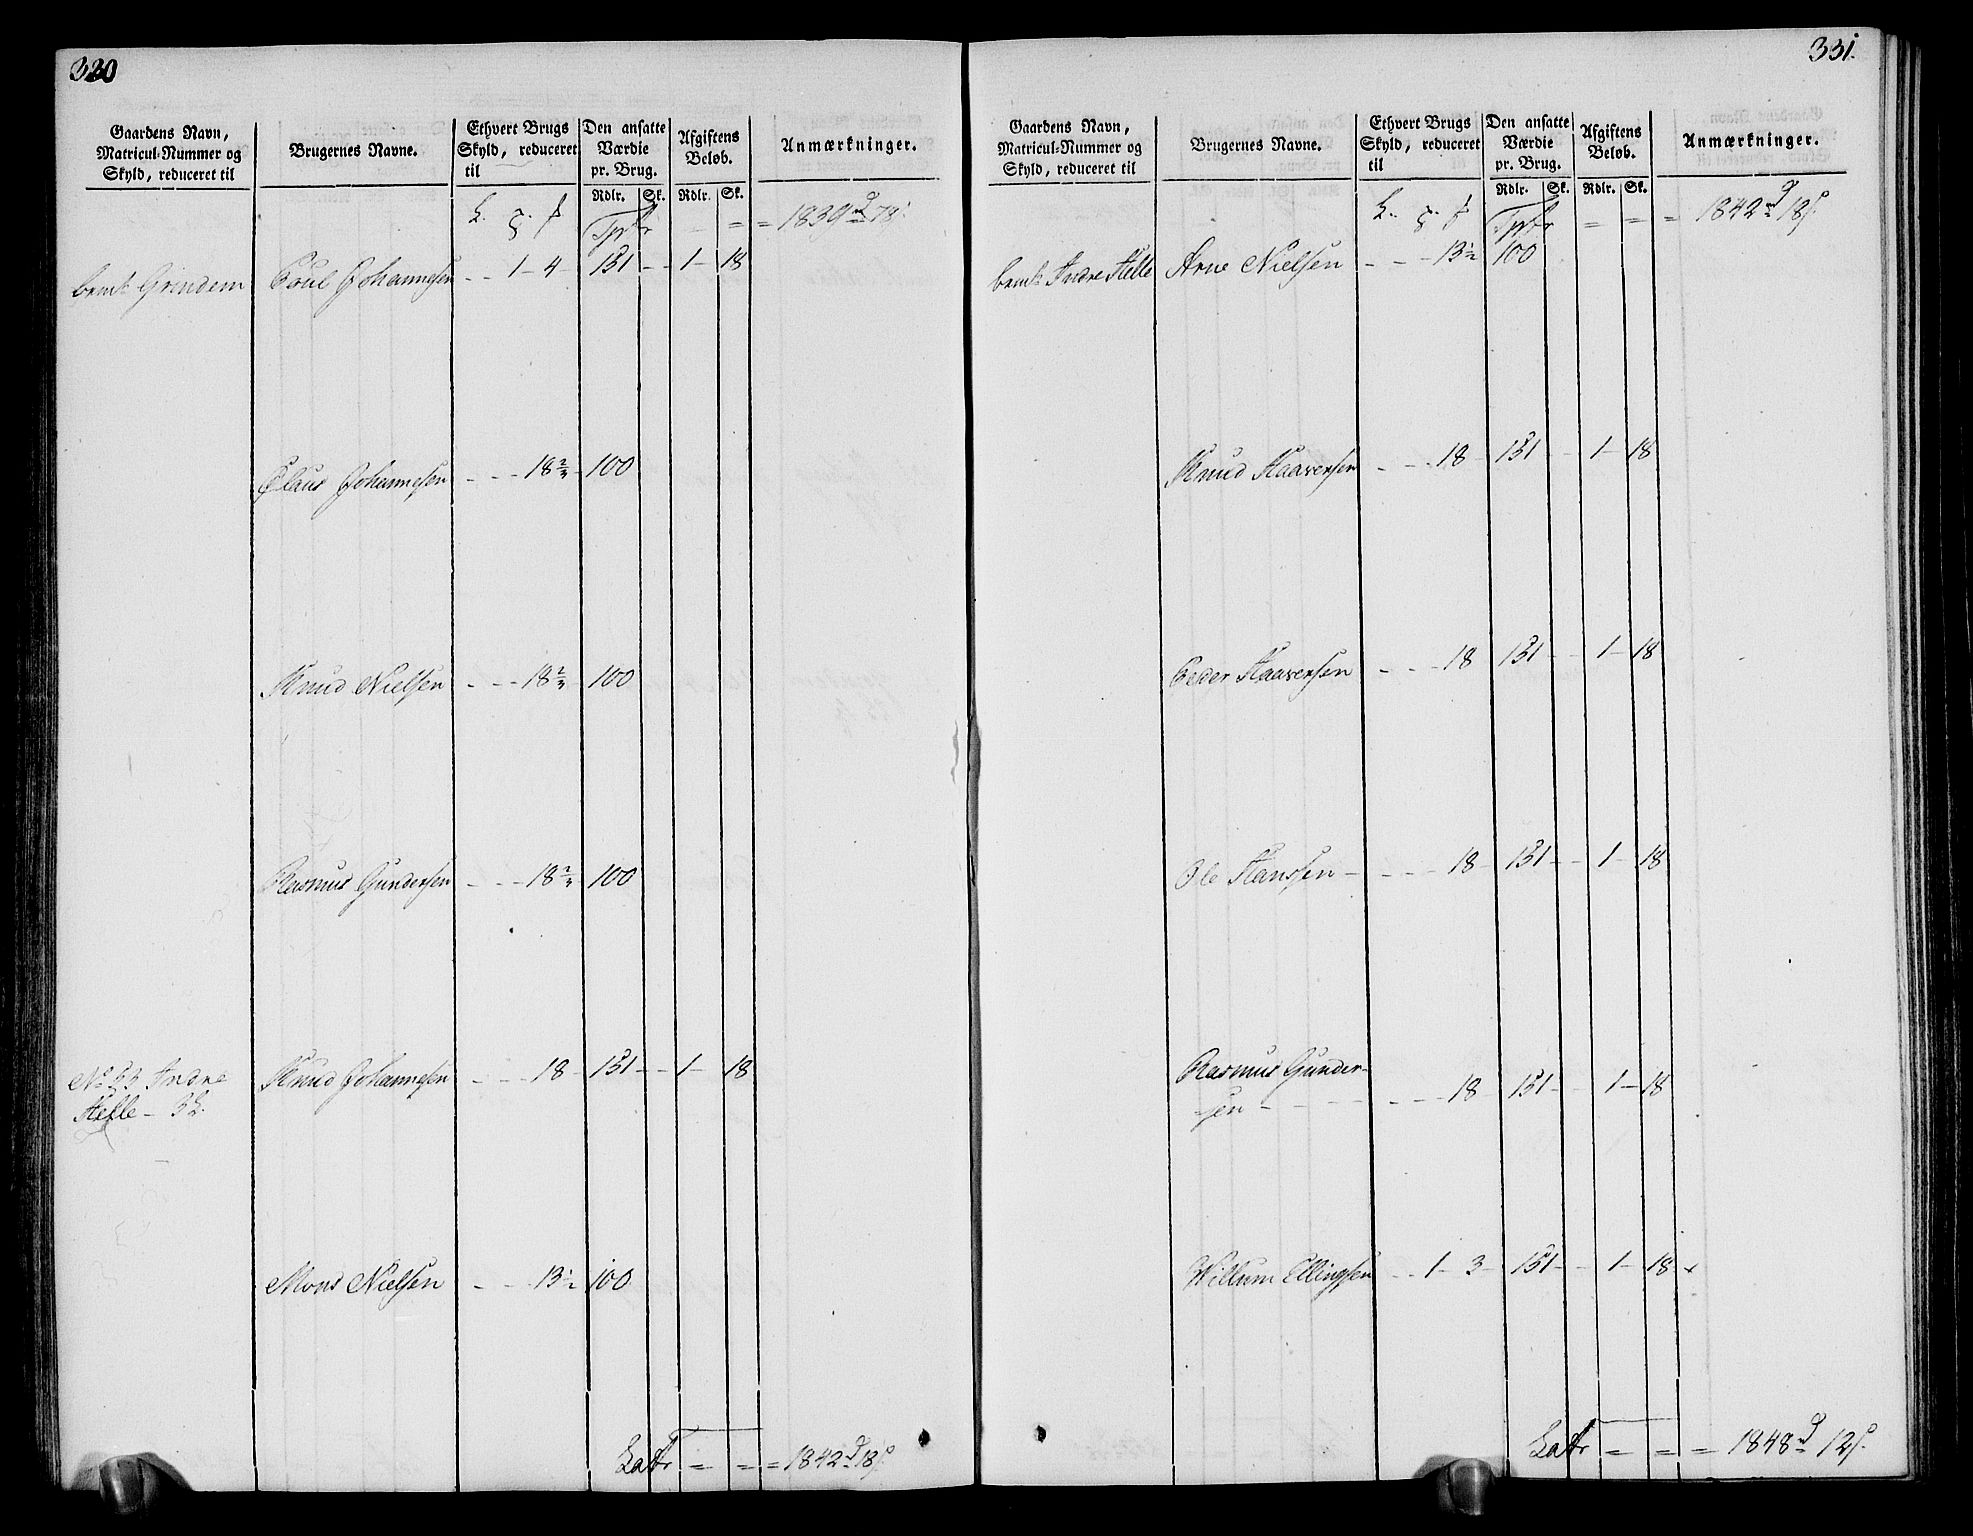 330
Gaardens Navn,
Matricul-Nummer og
Skyld, reduceret til
Brugernes Navne.
Ethvert Brugs
Skyld, reduceret
til
Den ansatte
Værdie
pr. Brug.
Rdlr. Sk.
Afgiftens
Beløb.
Rdlr. Sk.
Anmærkninger.
Tpr = = 1839 d 78 s.
bemt Grindem Poul Johannesen - - 1 - 4 - 151 - - 1 - 18
Claus Johannesen - - - 18 2/3 - 100
Knud Nielsen - - - 18 2/3 - 100
Rasmus Gundersen - - - 18 2/3 - 100
No 53 Indre Knud Johannesen - - - 18 - 151 - - 1 - 18
Helle - 3 L.
Mons Nielsen - - - 13 1/2 100
Latr = = = 1842 d 18 s.
331.
Gaardens Navn,
Matricul-Nummer og
Skyld, reduceret til
Brugernes Navne.
Ethvert Brugs
Skyld, reduceret
til
Den ansatte
Værdie
pr. Brug.
Rdlr. Sk.
Afgiftens
Beløb.
Rdlr. Sk.
Anmærkninger.
Tpr = = = 1842 d 18 s.
bemt Indre Helle Arne Nielsen - - - 13 1/2 100
Knud Haaversen - - - 18 - 151 - - 1 - 18
Peder Haaversen - - - 18 151 - - 1 - 18
Ole Hanssen - - - - 18 - 151 - - 1 - 18
Rasmus Gunder-
sen - - - - - - - 18 - 151 - - 1 - 18
Willum Ellingsen - - 1 - 3 - 151 - - 1 - 18 x
Latr = = = 1848 d 12 s.